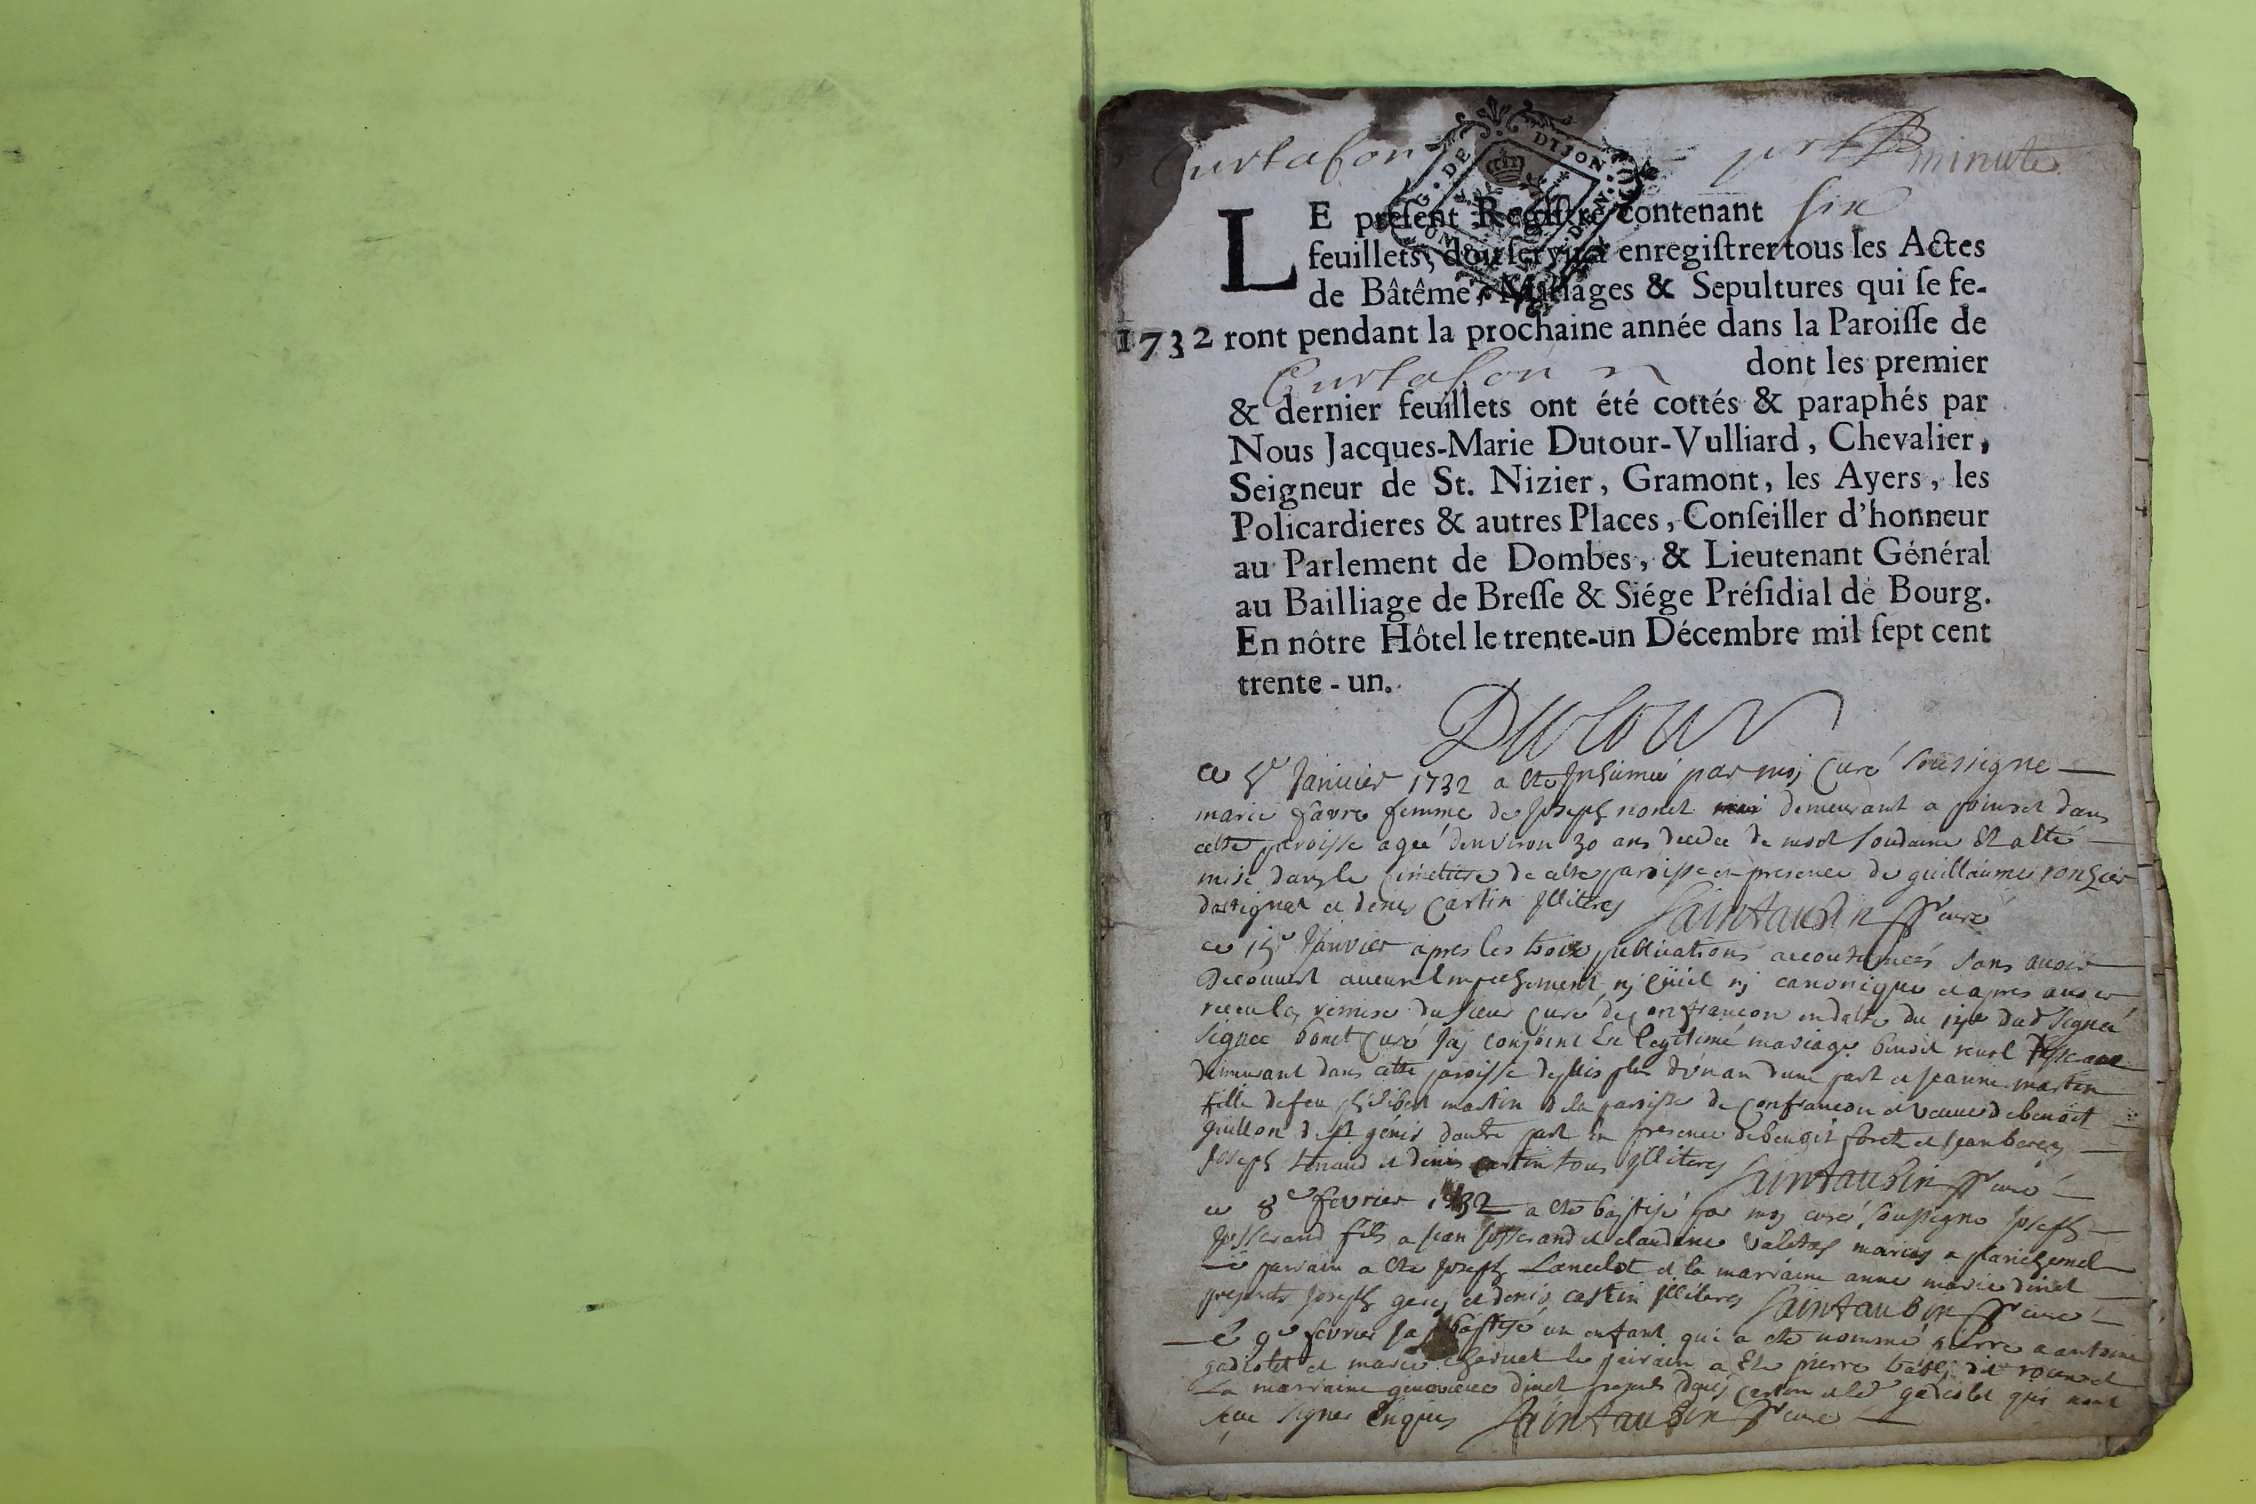 Curtafon minute
LE preſent Regiſtre contenant ſix
feuillets, doit ſervir à enregiſtrer tous les Actes
de Bâtême, Mariages & Sepultures qui ſe fe-
1732 ront pendant la prochaine année dans la Paroiſſe de
Curtafon dont les premier
& dernier feuillets ont été cottés & paraphés par
Nous Jacques-Marie Dutour-Vulliard, Chevalier,
Seigneur de St. Nizier, Gramont, les Ayers, les
Policardieres & autres Places, Conſeiller d'honneur
au Parlement de Dombes, & Lieutenant Général
au Bailliage de Breſſe & Siége Préſidial de Bourg.
En nôtre Hôtel le trente-un Décembre mil ſept cent
trente-un.
Dutour
ce Janvier 1732 a ete Inhumée par moy Curé soussigne
marie favre femme de Joseph nonet demeurant a dans
cette paroisse agée denviron 30 ans decedee de mort soudaine Et a été
mise dans le cimetiere de cette paroisse en presence de guillaume
et denis Cartin Illiteres Saintaubin curé
ce Janvier apres les trois publications accoutumées sans avoir
decouvert aucun Empechement ny Civil ny canonique et apres avoir
receu la remise du sieur curé de Confrancon en datte du
signée Curé Jay conjoint En legitime mariage benoit
demeurant dans cette paroisse depuis plus d'un an dune part et Jeanne martin
fille de feu philibert martin de la paroisse de Confrancon et veuve de benoit
guillon de st genis dautre part En presence de benoit et Jean
Joseph et denis Cartin tous Illiteres Saintaubin curé
ce 8e fevrier 1732 a ete baptisé par moy curé soussigne Joseph
Josserand fils a Jean Josserand et claudine mariés a
Le parrain a ete Joseph Lancelot et la marraine anne marie dinet
presents Joseph et denis Cartin Illiteres Saintaubin curé
Le 9e fevrier Jay baptisé un enfant qui a ete nommé pierre a antoine
et marie le parrain a ete pierre dit
La marraine genevieve dinet presents denis Cartin et led qui nont
sceu signer Enquis Saintaubin curé